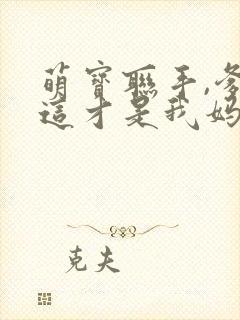 萌寶聯手,爹
這才是我媽
克夫